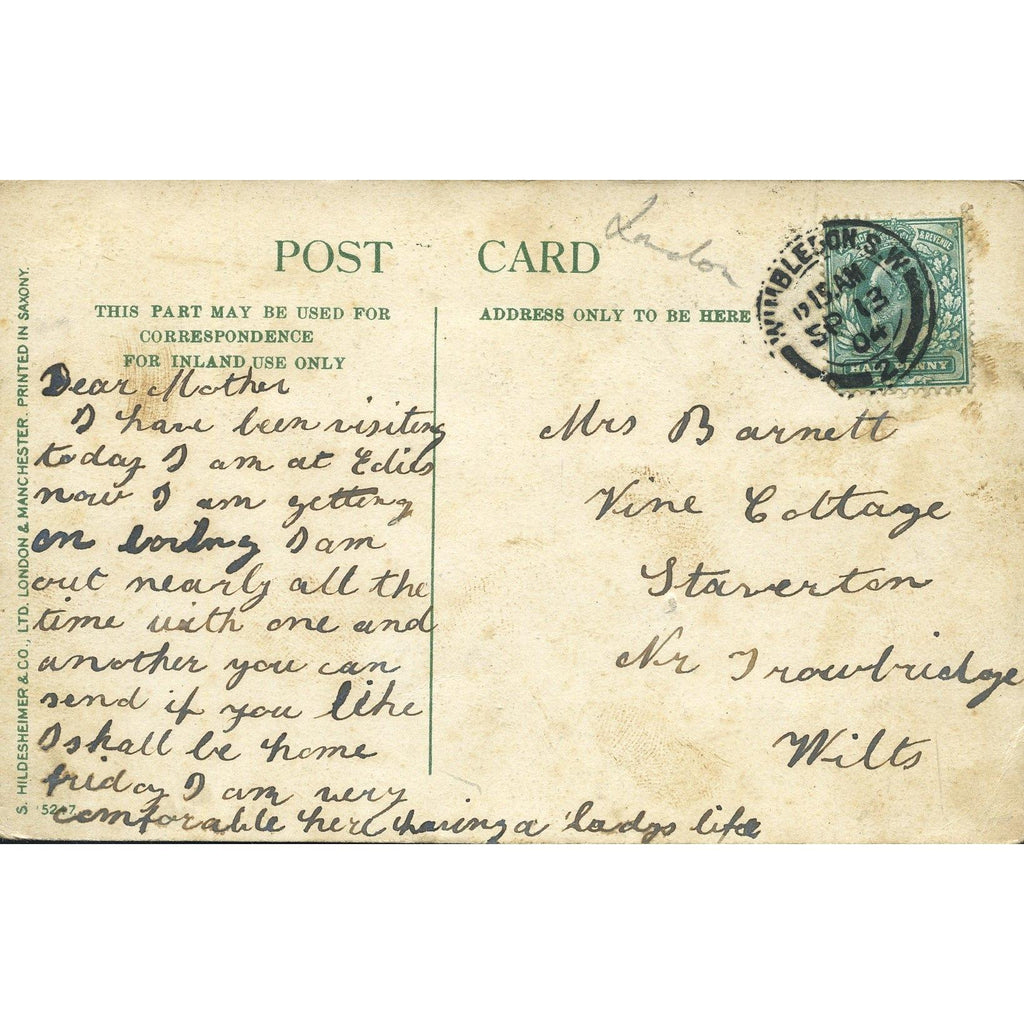 POST CARD
London
THIS PART MAY BE USED FOR
CORRESPONDENCE
FOR INLAND USE ONLY
ADDRESS ONLY TO BE HERE
WIMBLEDON.S.W.
12.15.AM
SP 13
04
& REVENUE
HALFPENNY
Dear Mother
I have been visiting
today I am at Edies
now I am getting
on I am
out nearly all the
time with one and
another you can
send if you like
I shall be home
friday I am very
comforable here having a ladys life
Mrs Barnett
Vine Cottage
Staverton
Nr Trowbridge
Wilts
S. HILDESHEIMER & CO., LTD. LONDON & MANCHESTER. PRINTED IN SAXONY.